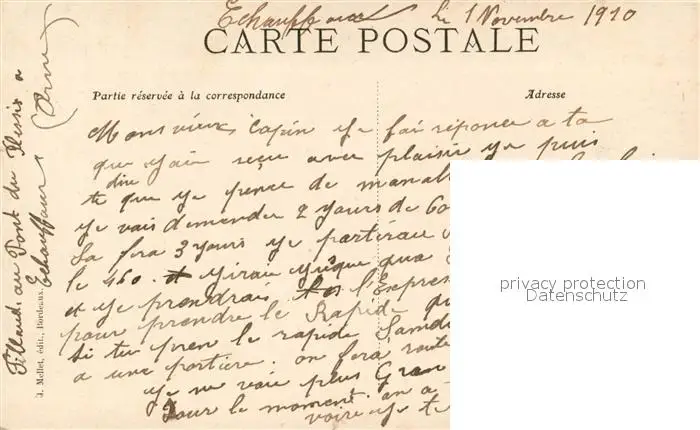 Echauffour Le 1 Novembre 1910
CARTE POSTALE
Partie réservée à la correspondance
Adresse
Mons vieux Copin ye fai réponce a ta
que yaie reçu avec plaisir ye puis
dire
te que ye pence de
ye vais demander 2 yours de
Sa fera 3 yours ye partirai
le 460. et yirai yusque qua
et ye prendrais l'Expres
pour prendre le Rapide
Si tu pren le rapide Samdi
a une portière. on fera route
ye ne vaie plus Gran
Pour le moment. an a
voire ye te
Fillaud, au Pont du Plessis a
Echauffour
(Orne)
J. Mellet, édit., Bordeaux.
privacy protection
Datenschutz